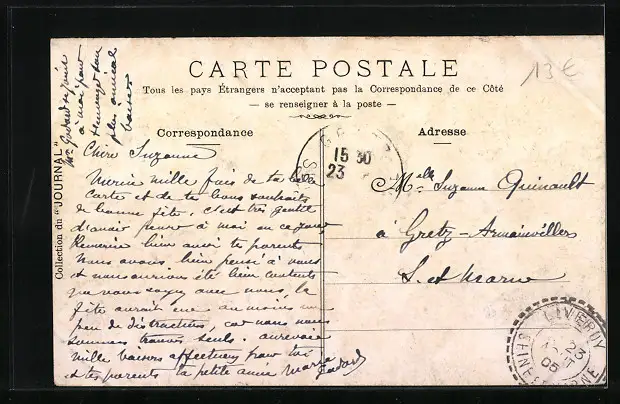 CARTE POSTALE
Tous les pays Étrangers n'acceptent pas la Correspondance de ce Côté
— se renseigner à la poste —
Correspondance
Adresse
Collection du "JOURNAL"
13€
Mme Godard se joint
à moi pour
envoyer son
plus amical
baiser
Chère Suzanne
Merci mille fois de ta belle
carte et de tes bons souhaits
de bonne fête. C'est très gentil
d'avoir pensé à moi en ce jour
Remercie bien aussi tes parents
Nous avons bien pensé à vous
et nous aurions été bien contents
que vous soyez avec nous, la
fête aurait eue au moins un
peu de distractions, car nous nous
sommes trouvés seuls. aurevoir
mille baisers affectueux pour toi
et tes parents ta petite amie
Mlle Suzanne Quinault
à Gretz-Armainvilliers
S. et Marne
15 30
23
LIVERDY
23
05
SEINE ET MARNE